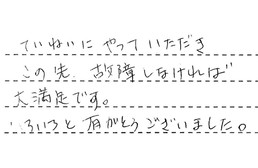 ていねいにやっていただき
この先、故障しなければ
大満足です。
いろいろと有がとうございました。